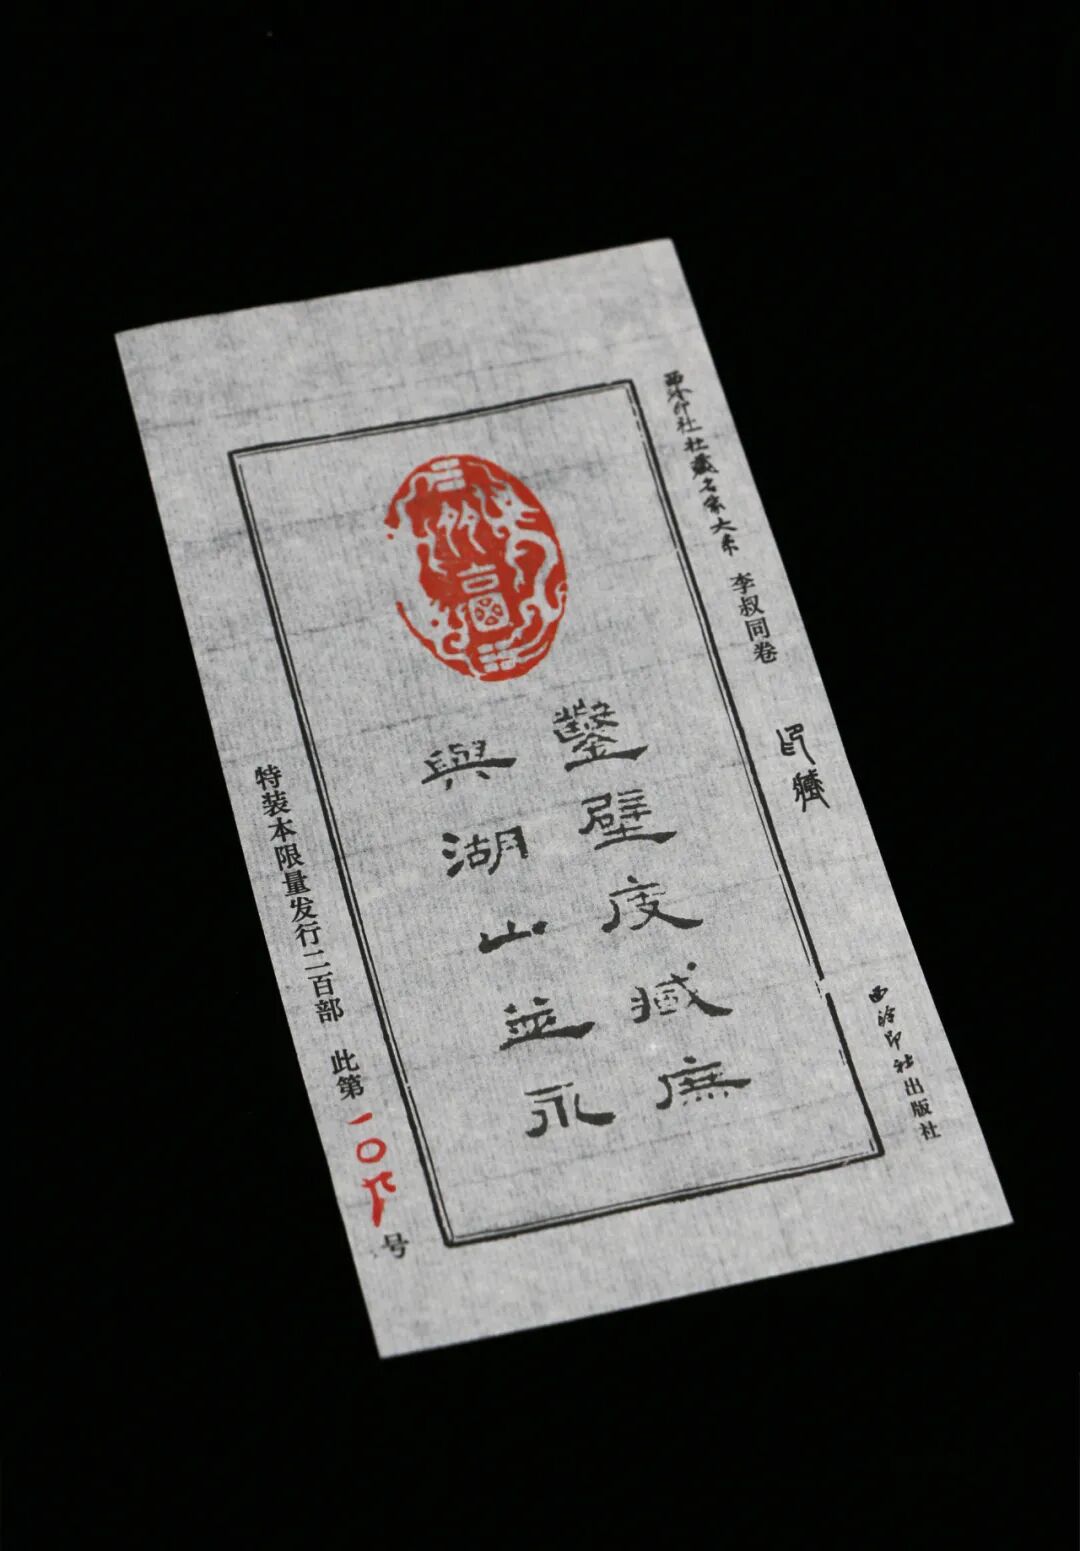 西泠印社社藏名家大系 李叔同卷
印藏
西泠印社出版社
鑿壁庋臧庶
與湖山並永
特装本限量发行二百部 此第一〇九号